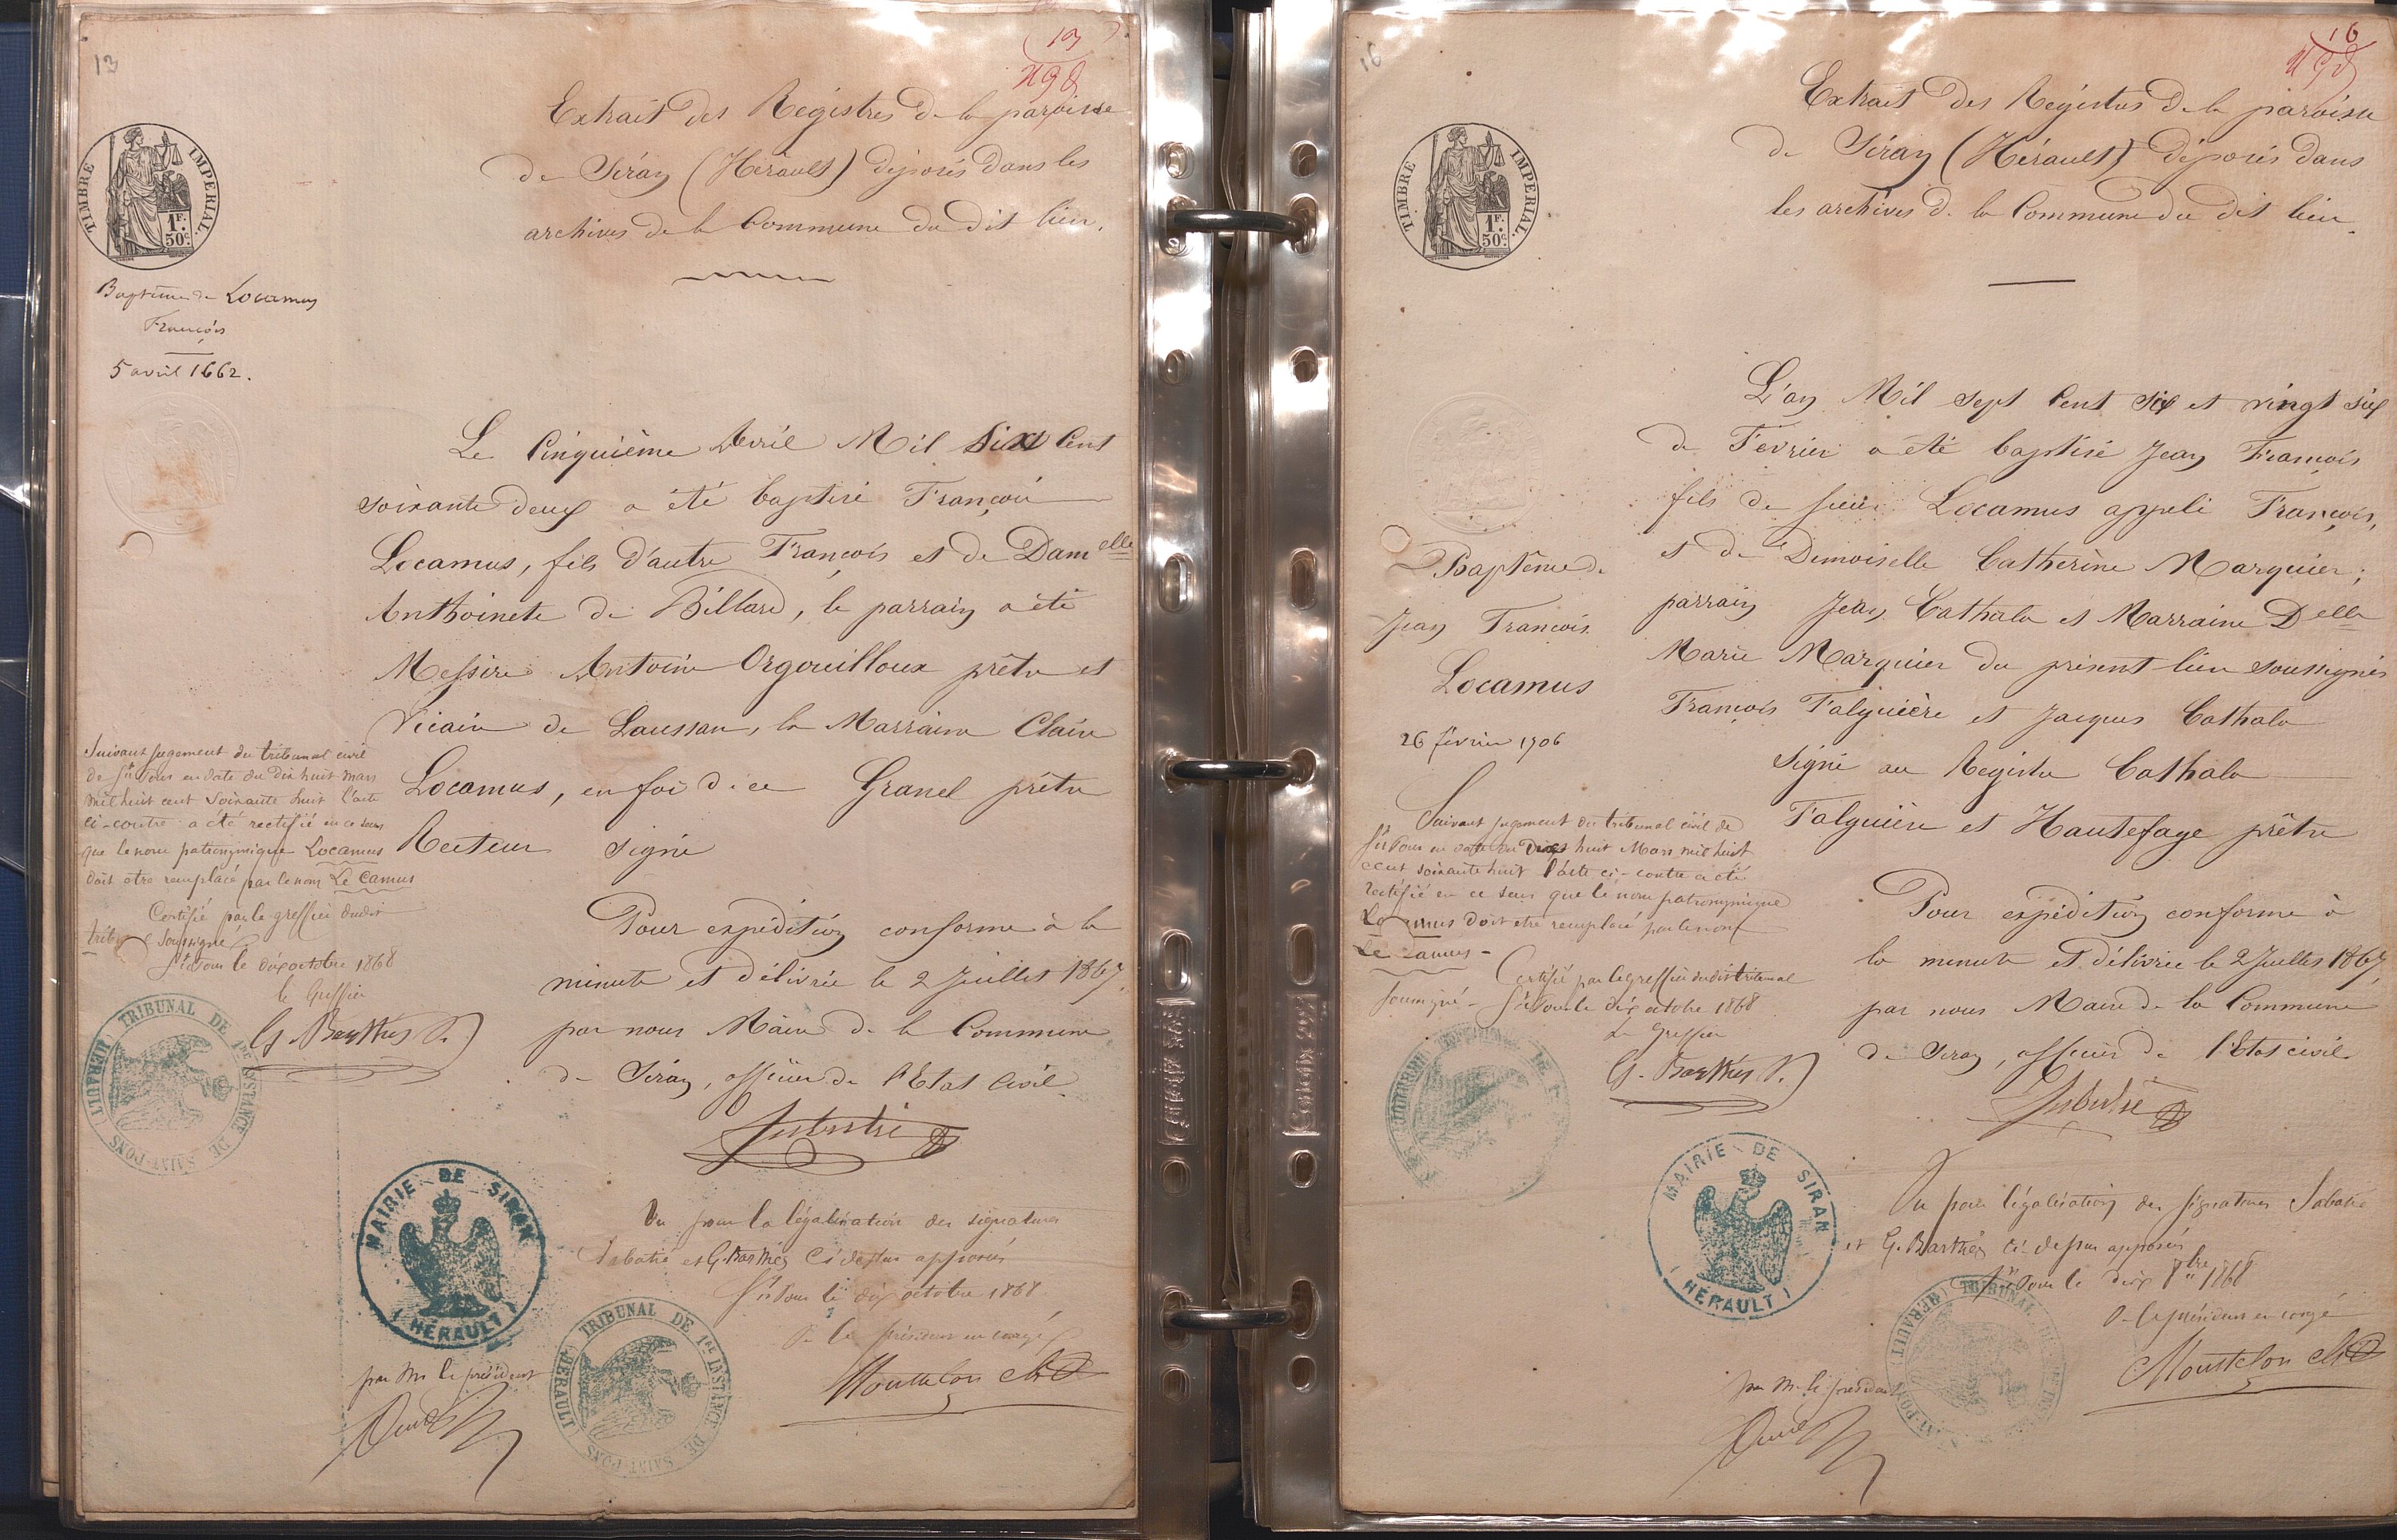 13
13
498
Extrait des Régistres de la paroisse
de Siran (Hérault) déposés dans les
archives de la Commune du dit lieu.
TIMBRE IMPERIAL
1F.
50c.
Baptême de Locamus
François
5 avril 1662.
Le Cinquième Avril Mil Six Cent
soixante deux a été baptisé François
Locamus, fils d'autre François et de Damelle
Anthoinete de Billard, le parrain a été
Messire Antoine Orgouilloux prêtre et
Vicaire de Laussan, la Marraine Claire
Locamus, en foi de ce Granel prêtre
Recteur signé
Suivant jugement du tribunal civil
de St Pons en date du dix huit mars
mil huit cent soixante huit l'acte
ci-contre a été rectifié en ce sens
que le nom patronymique Locamus
doit être remplacé par le nom Le Camus
Certifié par le greffier dudit
tribunal soussigné
St Pons le dix octobre 1868
le Greffier
G. Barthès
TRIBUNAL DE 1RE INSTANCE DE SAINT-PONS (HERAULT)
Pour expédition conforme à la
minute et délivrée le 2 Juillet 1867.
par nous Maire de la Commune
de Siran, officier de l'Etat Civil
Sabatié
MAIRIE DE SIRAN
(HERAULT)
Vu pour la légalisation des signatures
Sabatié et G. Barthès ci dessus apposées
St Pons le dix octobre 1868
le président en congé
par Mr le président
TRIBUNAL DE 1RE INSTANCE DE SAINT-PONS (HERAULT)
16
16
498
Extrait des Régistres de la paroisse
de Siran (Hérault) déposés dans
les archives de la Commune du dit lieu.
TIMBRE IMPERIAL
1F.
50c.
L'an Mil sept Cent six et vingt six
de Fevrier a été baptisé Jean François
fils de sieur Locamus appelé François,
et de Demoiselle Catherine Marquier;
parrain Jean Cathala et Marraine Delle
Marie Marquier du présent lieu soussignés
François Falguière et Jacques Cathala
signé au Registre Cathala
Falguière et Hautefage prêtre
Baptême de
Jean François
Locamus
26 février 1706
Suivant jugement du tribunal civil de
St Pons en date du dix huit Mars mil huit
cent soixante huit l'acte ci-contre a été
rectifié en ce sens que le nom patronymique
Locamus doit être remplacé par le nom
Le Camus -
Certifié par le greffier dudit tribunal
soussigné - St Pons le dix octobre 1868
Le Greffier
G. Barthès
Pour expédition conforme à
la minute et délivrée le 2 Juillet 1867,
par nous Maire de la Commune
de Siran, officier de l'Etat civil.
Sabatié
MAIRIE DE SIRAN
(HERAULT)
Vu pour légalisation des signatures Sabatié
et G. Barthès ci-dessus apposées
St Pons le dix 8bre 1868
le président en congé
par M. le président
TRIBUNAL DE 1RE INSTANCE DE SAINT-PONS (HERAULT)